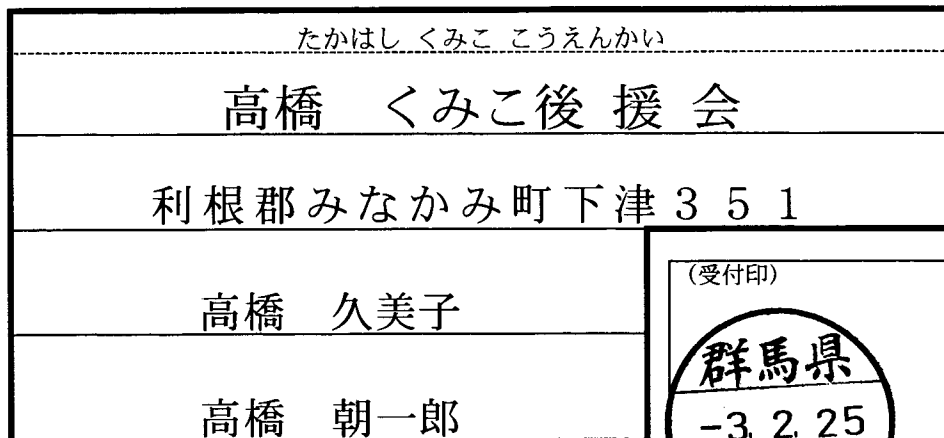 たかはし くみこ こうえんかい
高橋 くみこ後援会
利根郡みなかみ町下津351
高橋 久美子
高橋 朝一郎
(受付印)
群馬県
-3.2.25